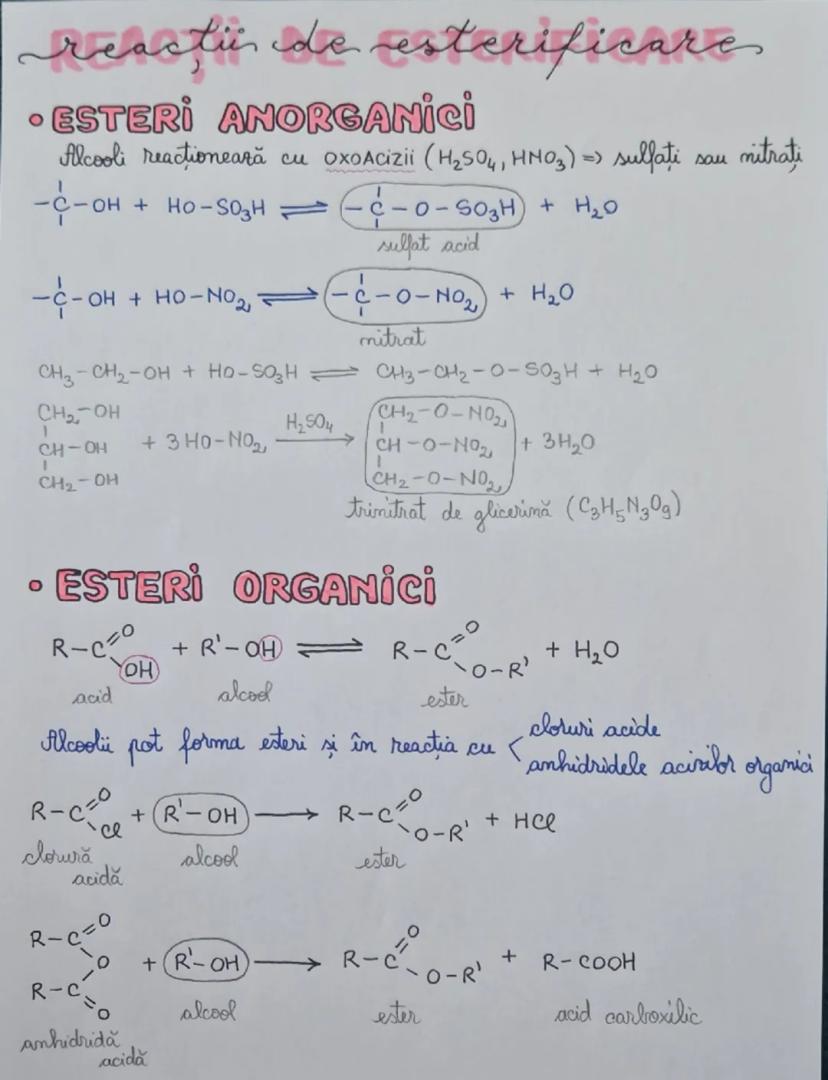 reacții de esterificare
REACȚII DE ESTERIFICARE
• ESTERI ANORGANICI
Alcooli reacționează cu OXOACIZII (H₂SO₄, HNO₃) => sulfați sau nitrați
-C-OH + HO-SO₃H ⇌ -C-O-SO₃H + H₂O
sulfat acid
-C-OH + HO-NO₂ ⇌ -C-O-NO₂ + H₂O
nitrat
CH₃-CH₂-OH + HO-SO₃H ⇌ CH₃-CH₂-O-SO₃H + H₂O
CH₂-OH CH₂-O-NO₂
CH-OH + 3 HO-NO₂ H₂SO₄ → CH-O-NO₂ + 3H₂O
CH₂-OH CH₂-O-NO₂
trinitrat de glicerină (C₃H₅N₃O₉)
• ESTERI ORGANICI
R-C=O OH + R'-OH ⇌ R-C=O O-R' + H₂O
acid alcool ester
Alcoolii pot forma esteri și în reacția cu < cloruri acide
anhidridele acizilor organici
R-C=O Cl + R'-OH → R-C=O O-R' + HCl
clorură acidă alcool ester
R-C=O O R-C=O + R'-OH → R-C=O O-R' + R-COOH
anhidridă acidă alcool ester acid carboxilic